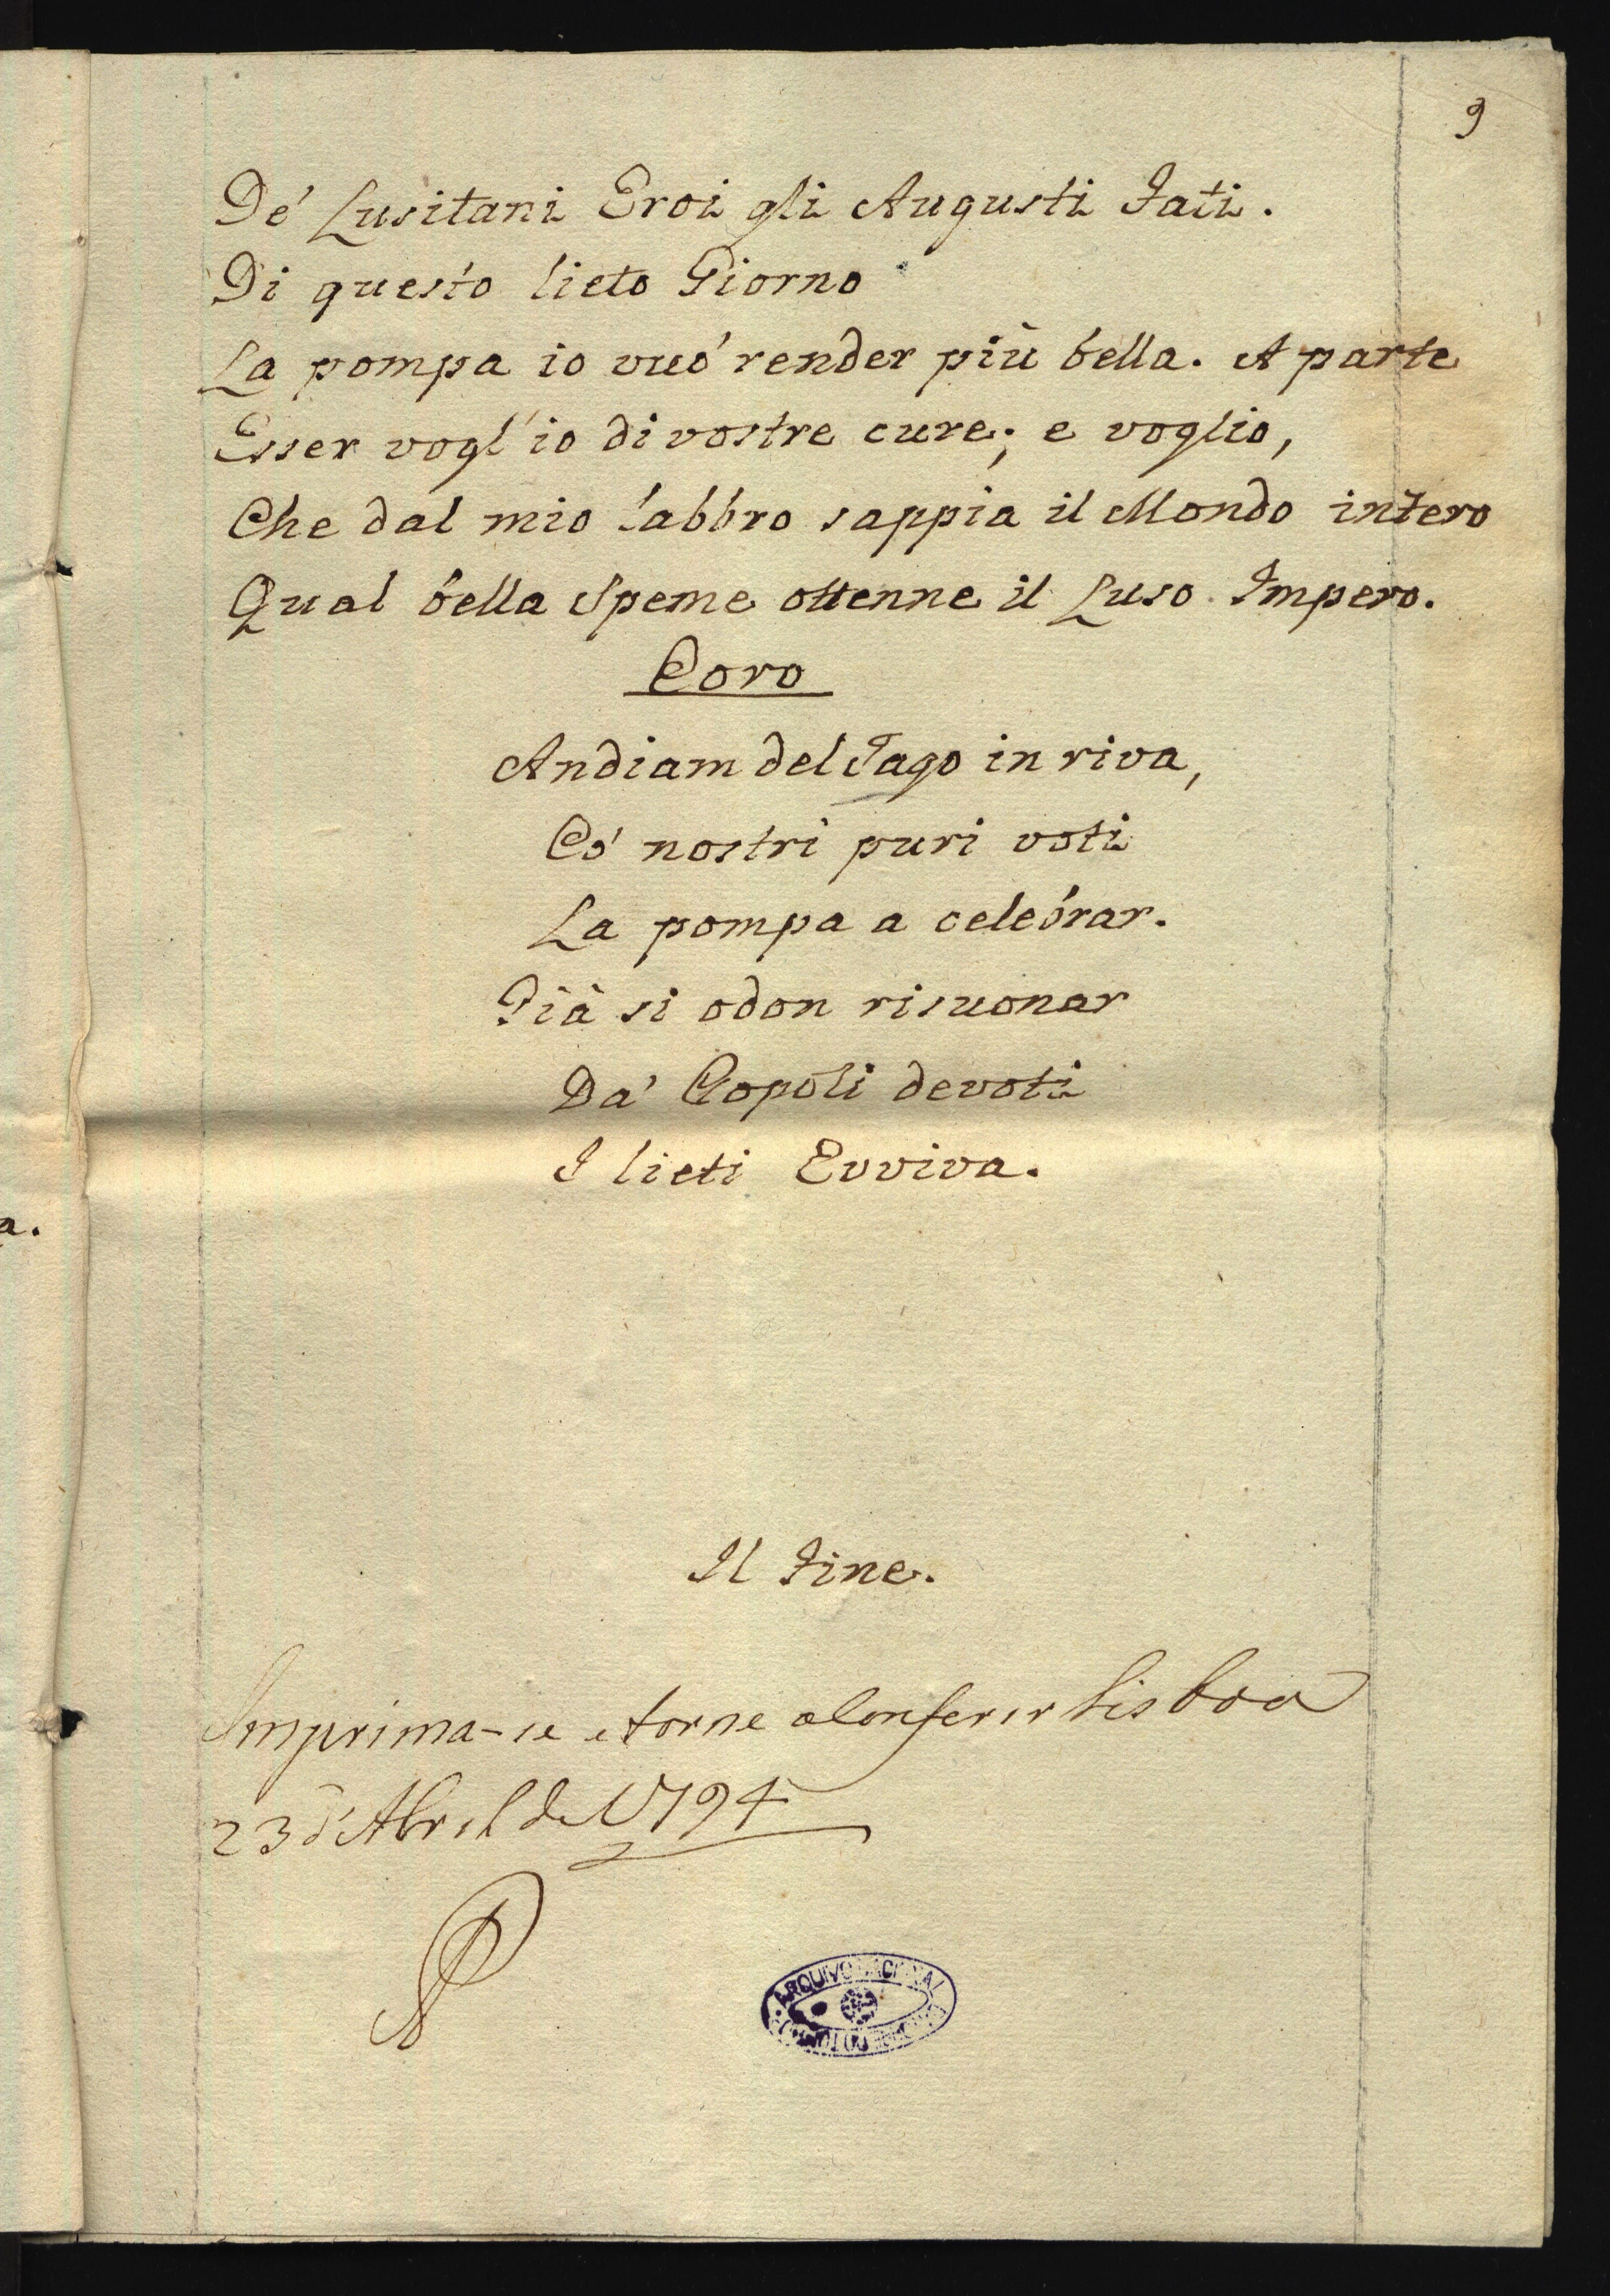 9
De' Lusitani Eroi gli Augusti Fati.
Di questo lieto Giorno
La pompa io vuó render più bella. A parte
Esser vogl'io di vostre cure; e voglio,
Che dal mio labbro sappia il Mondo intero
Qual bella Speme ottenne il Luso Impero.
Coro
Andiam del Tago in riva,
Co' nostri puri voti
La pompa a celebrar.
Già si odon risuonar
Da' Popoli devoti
I lieti Evviva.
a.
Il Fine.
Imprima-se e torne a Conferir Lisboa
23 d'Abril de 1794
ARQUIVO NACIONAL